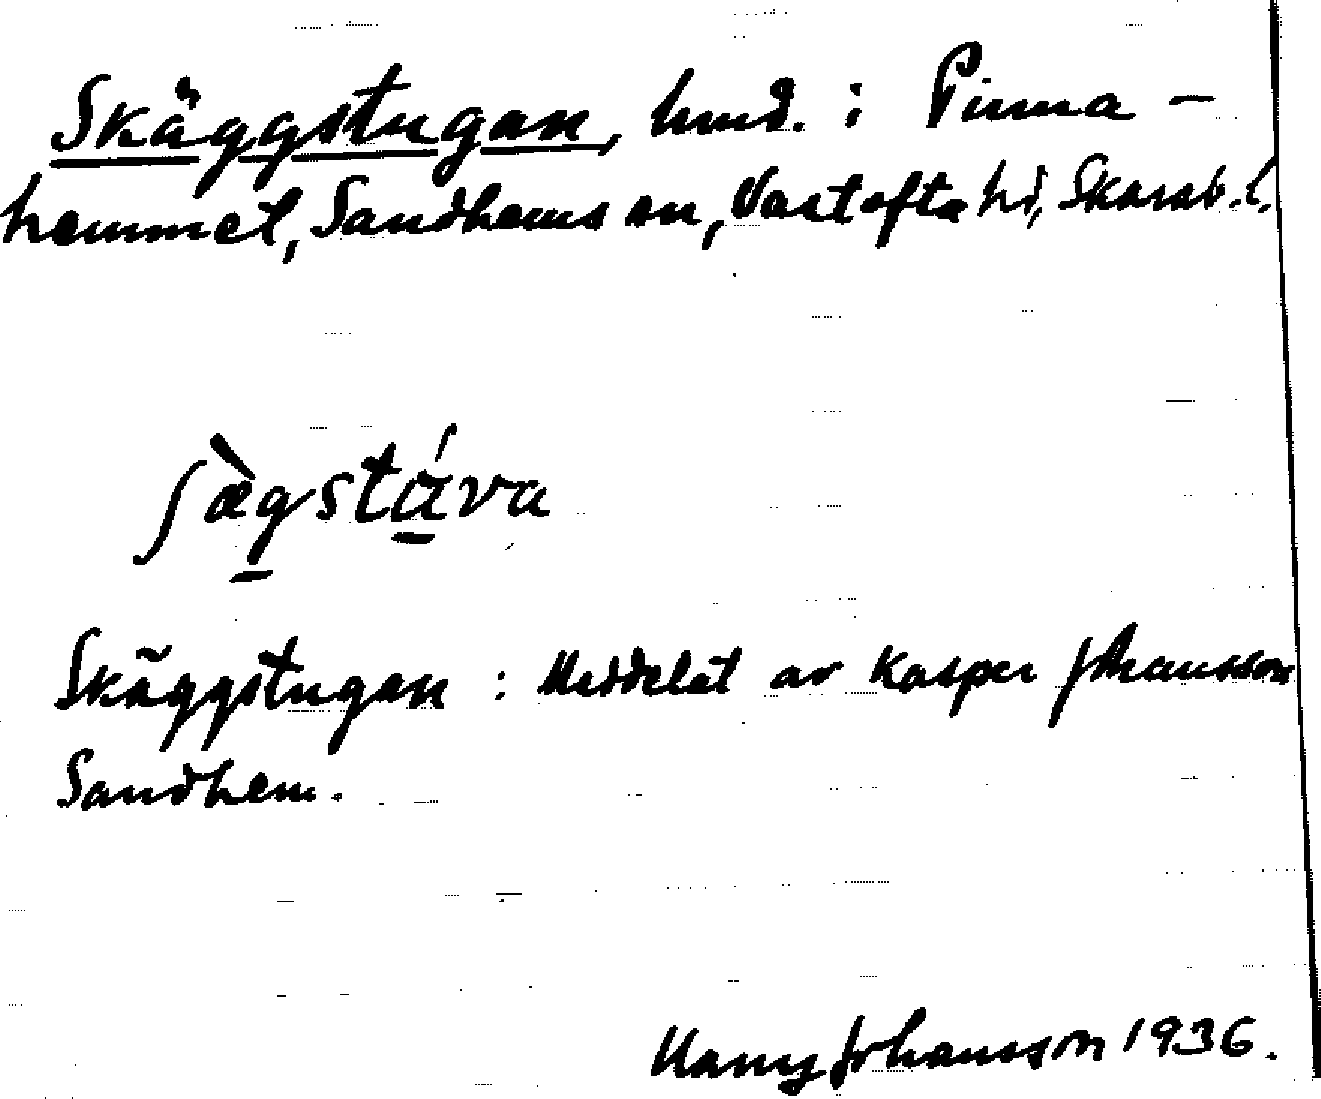 Skäggstugan, hmd. i Pinna-
hemmet, Sandhems sn, Vartofta hd, Skarab. l.
ʃæ̀gstáva
Skäggstugan : Meddelat av Kasper Johansson
Sandhem.
Johansson 1936.